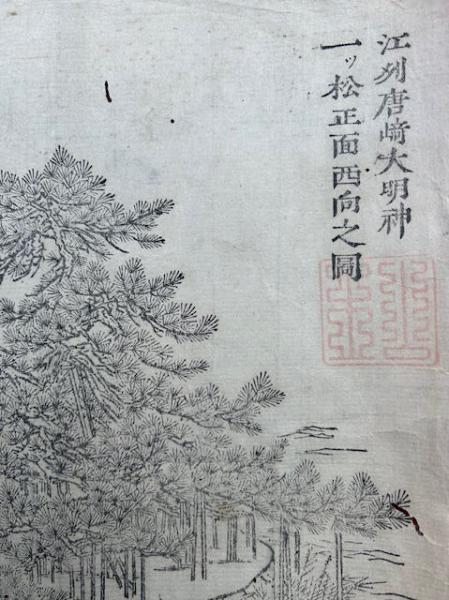 江州唐﨑大明神
一ッ松正面西向之圖